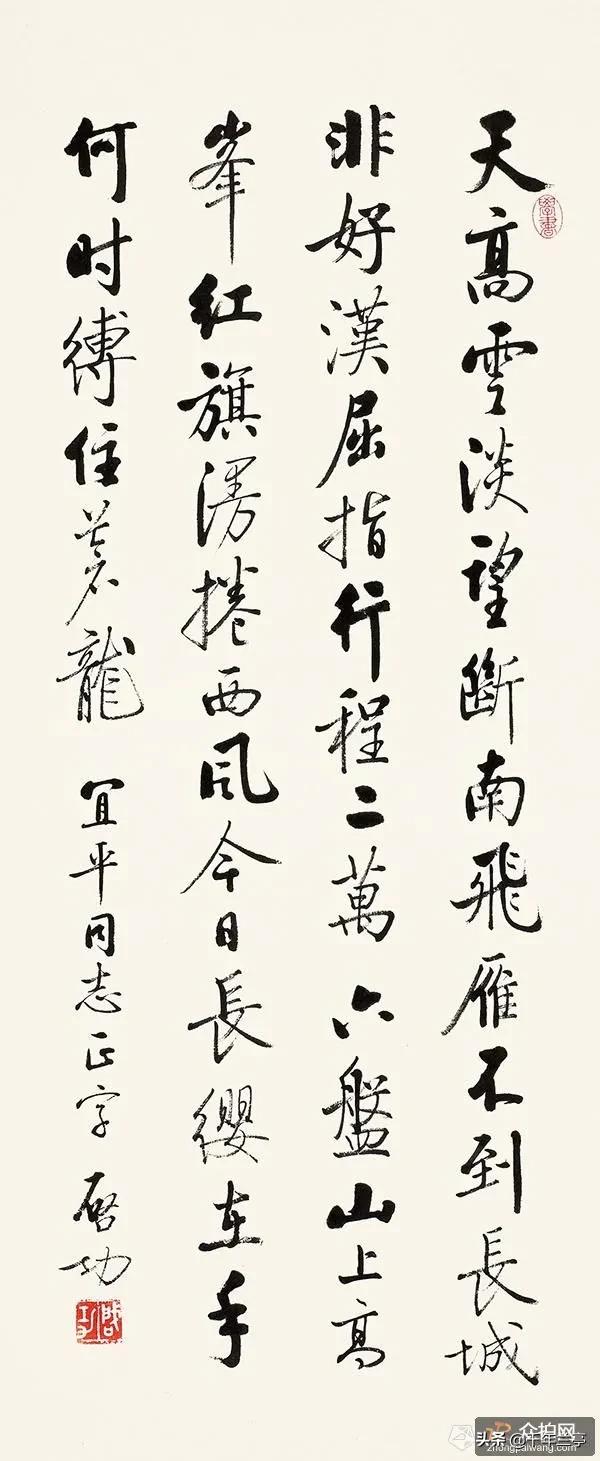 天高雲淡望斷南飛雁不到長城
非好漢屈指行程二萬 六盤山上高
峯紅旗漫捲西风今日長纓在手
何时縛住蒼龍 宜平同志正字 啓功
啓功
众拍网
头条 @千年兰亭
zhongpaiwang.com